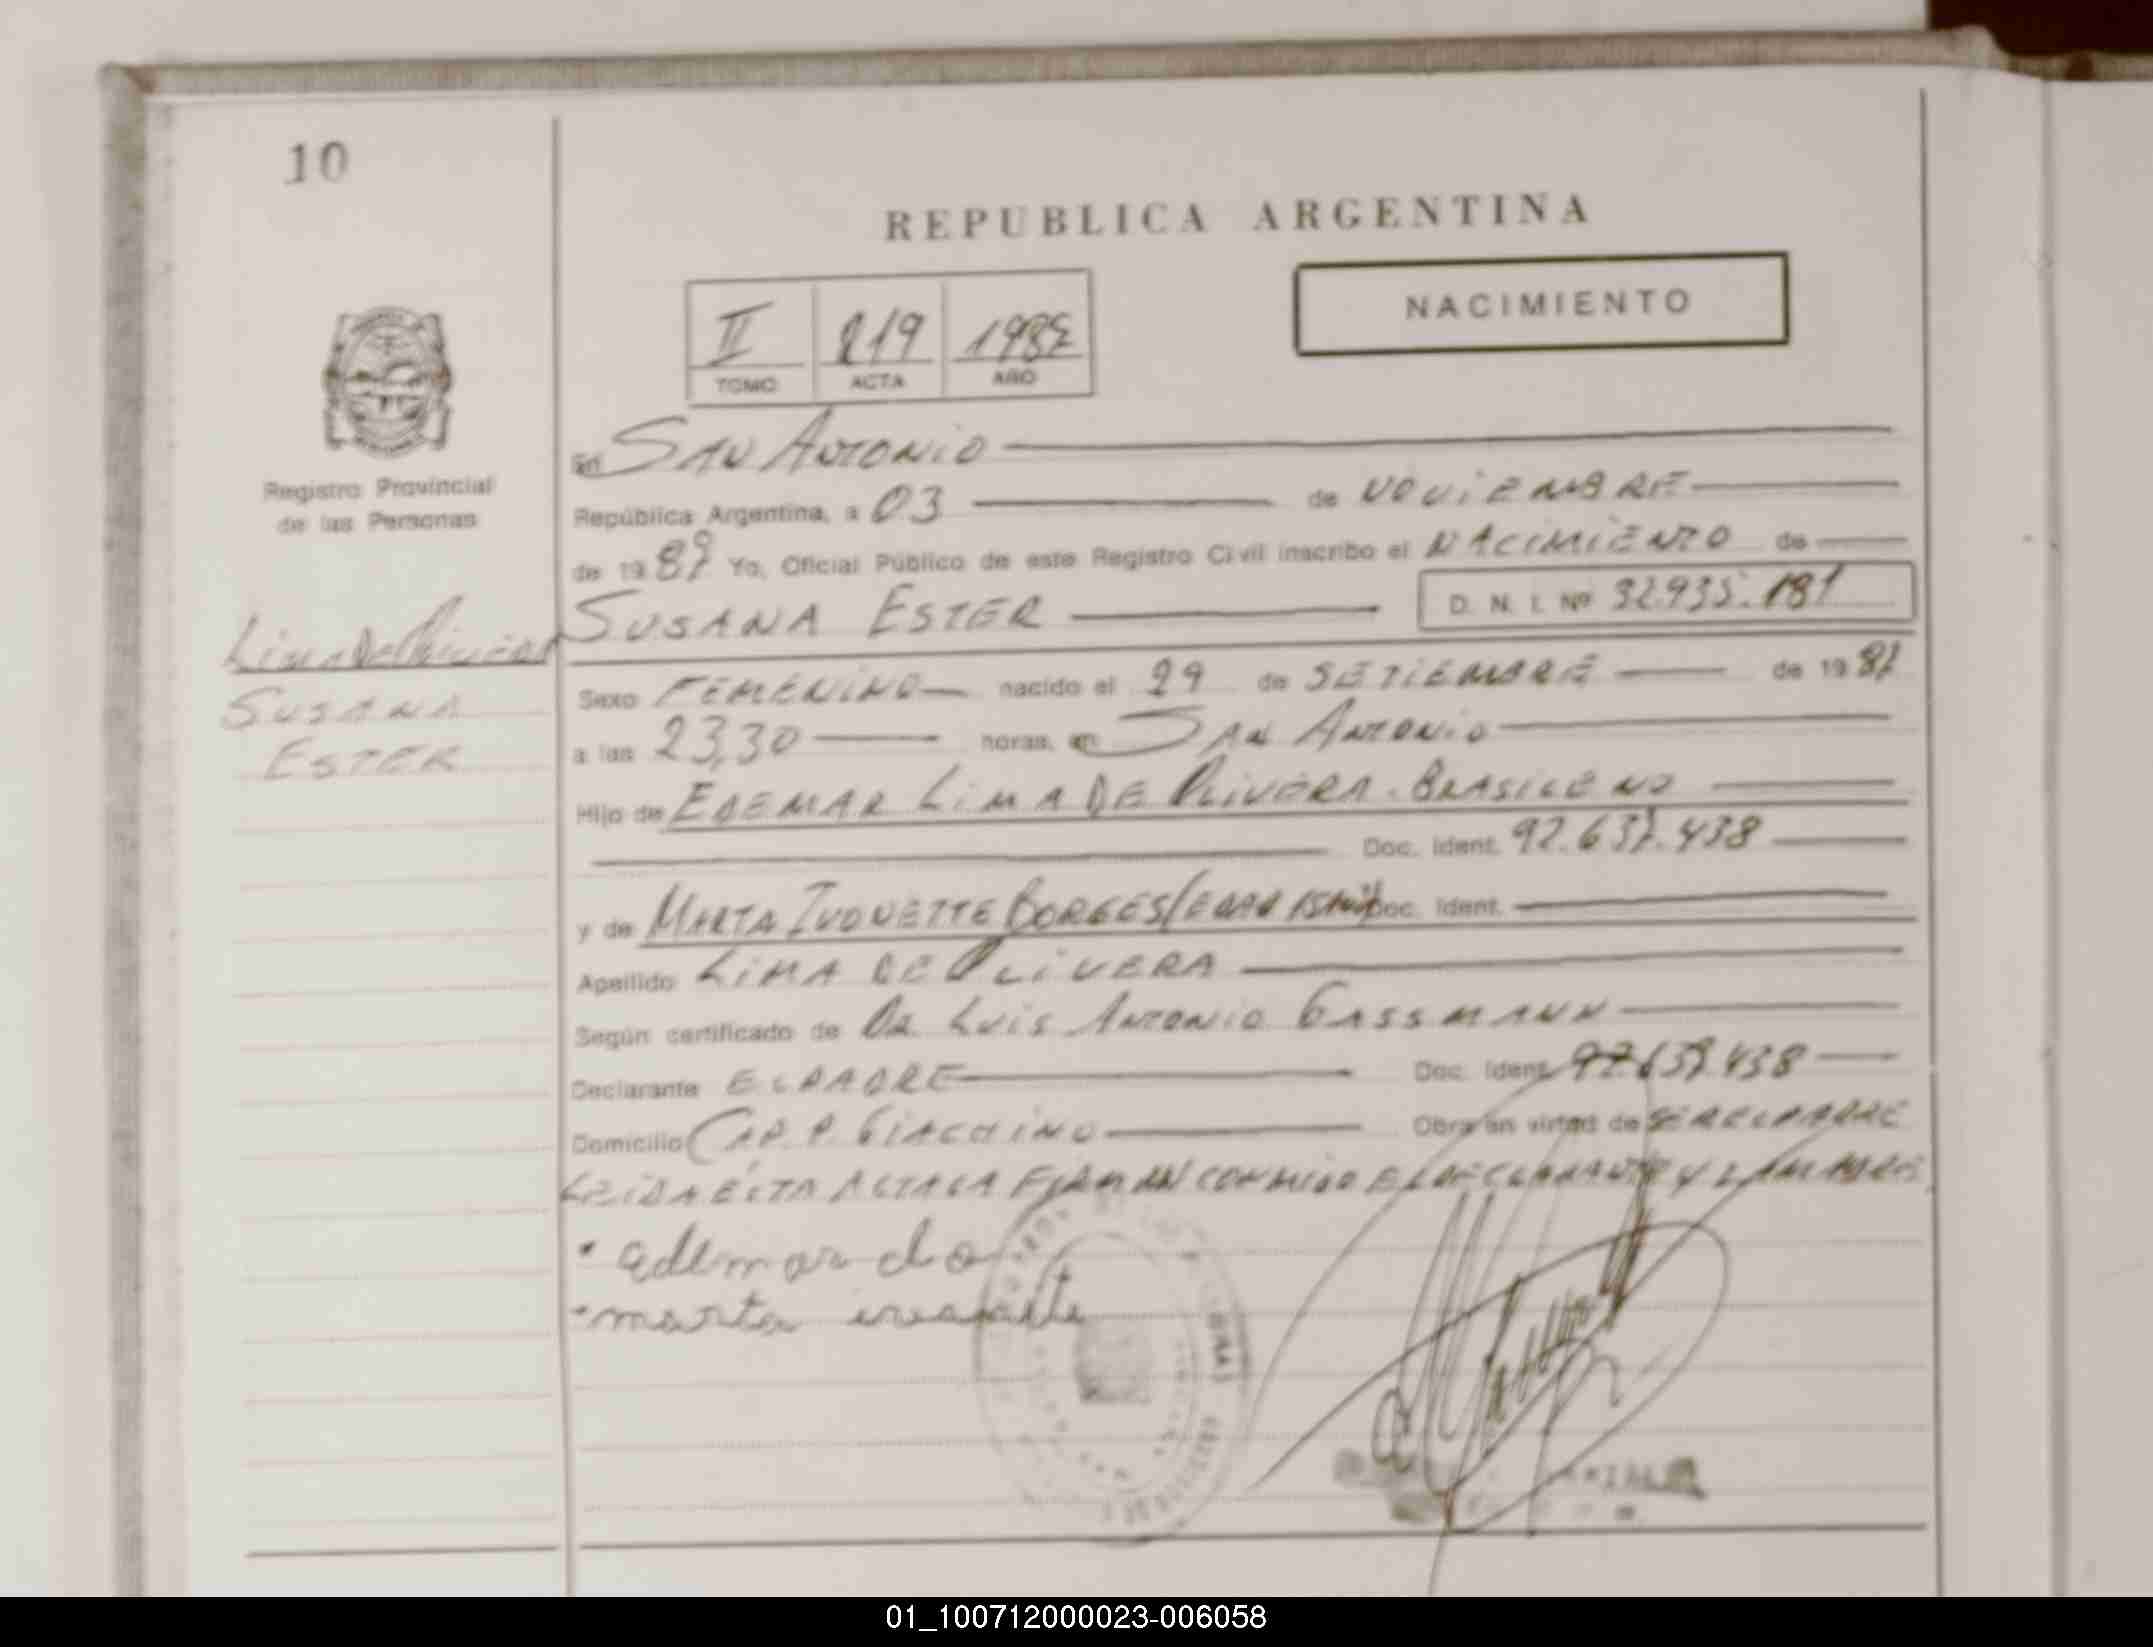 10
REPUBLICA ARGENTINA
NACIMIENTO
II 219 1987
TOMO ACTA AÑO
Registro Provincial
de las Personas
En SAN ANTONIO
República Argentina, a 03 de NOVIEMBRE
de 1987 Yo, Oficial Público de este Registro Civil inscribo el NACIMIENTO de
SUSANA ESTER D. N. I. Nº 32.935.181
LIMA DE OLIVERA
SUSANA
ESTER
Sexo FEMENINO nacido el 29 de SETIEMBRE de 1987
a las 23,30 horas, en SAN ANTONIO
Hijo de EDEMAR LIMA DE OLIVERA. BRASILENO
Doc. Ident. 92.637.438
y de MARTA IVONETTE BORGES (EDAD 15 Doc. Ident.
Apellido LIMA DE OLIVERA
Según certificado de DR LUIS ANTONIO GASSMANN
Declarante EL PADRE Doc. Ident. 92.637.438
Domicilio CAP. P. GIACHINO Obra en virtud de SER EL PADRE
LEIDA ESTA ACTA LA FIRMAN CONMIGO EL DECLARANTE Y LA MADRE
marta
01_100712000023-006058